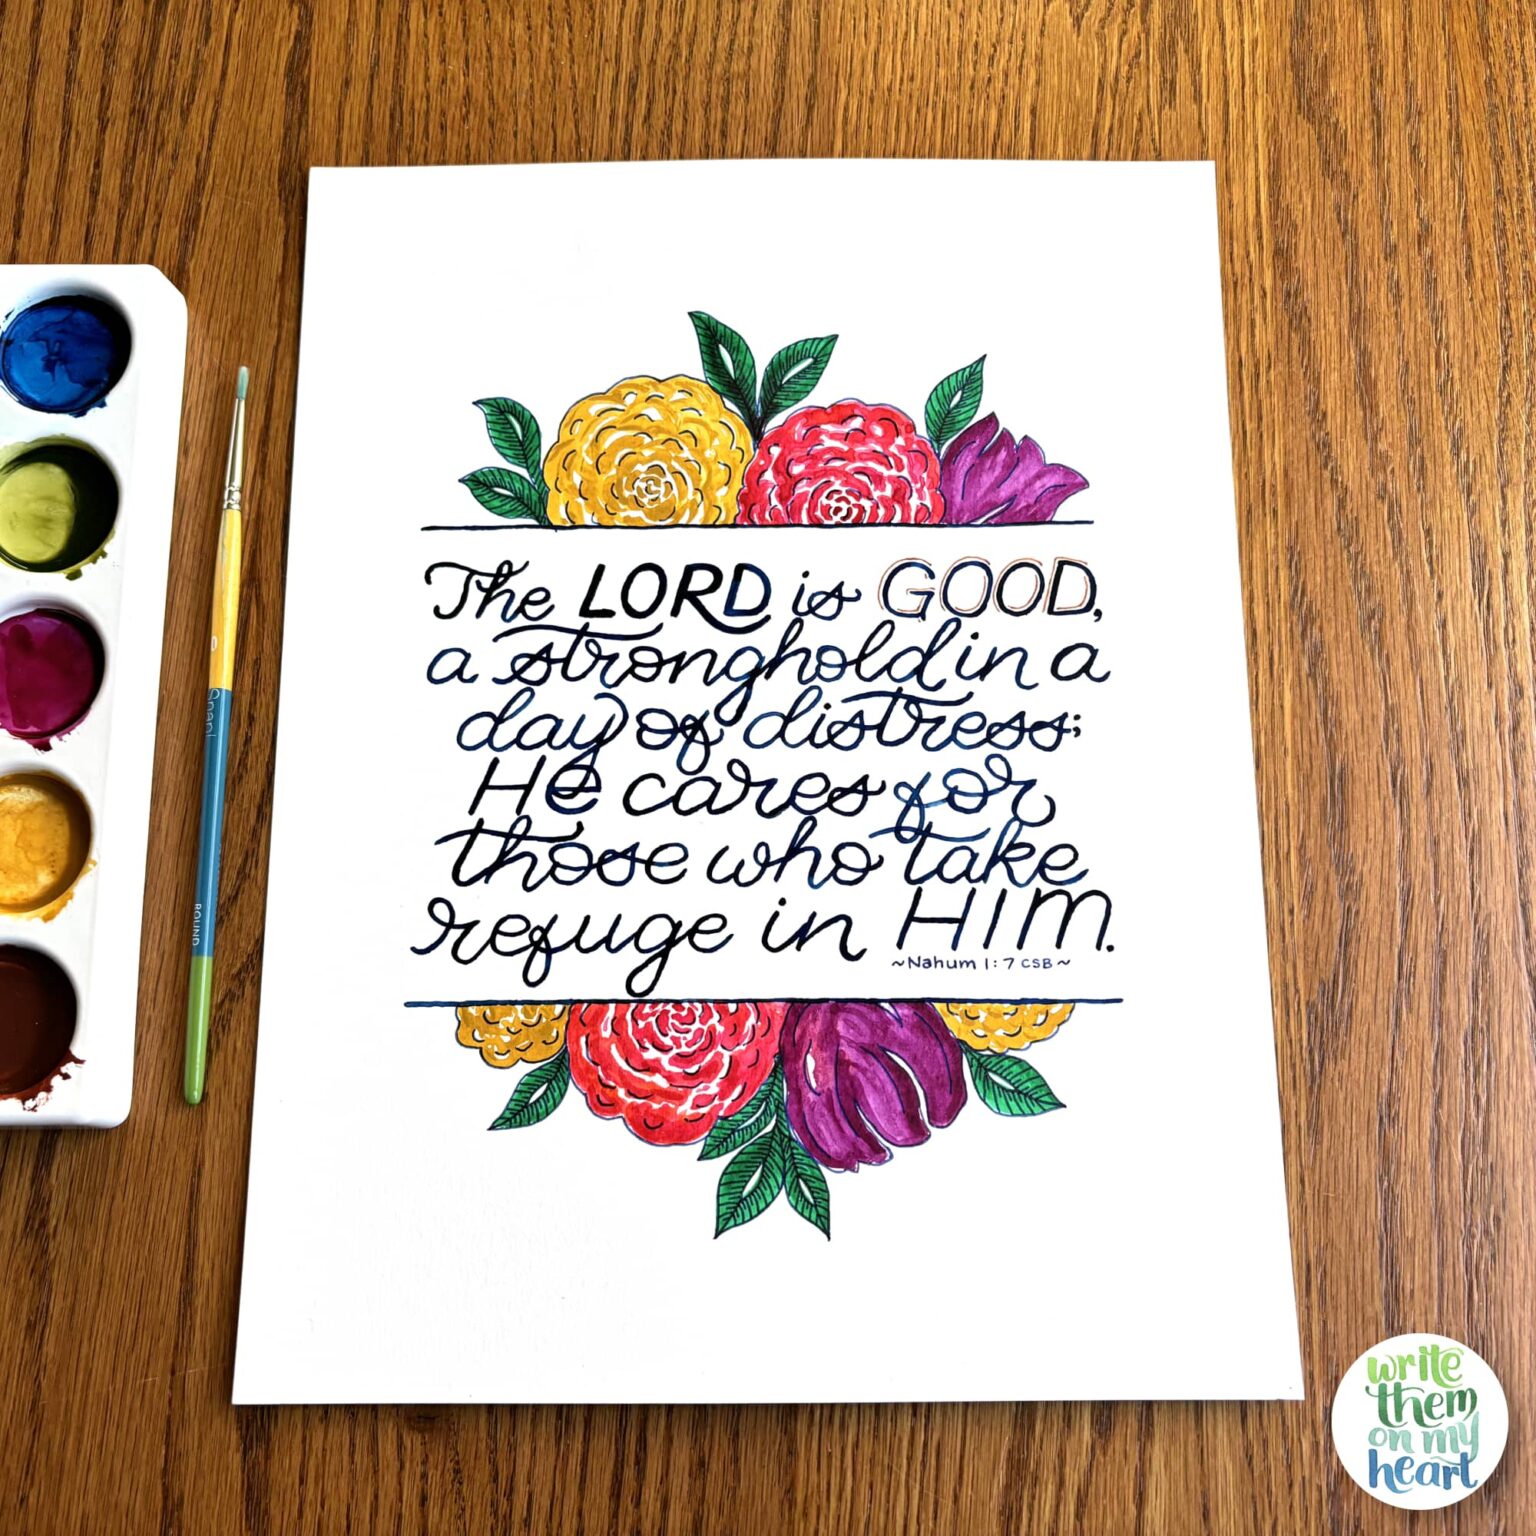 The LORD is GOOD,
a stronghold in a
day of distress;
He cares for
those who take
refuge in HIM.
~Nahum 1:7 CSB~
Snap!
0
ROUND
write
them
on my
heart